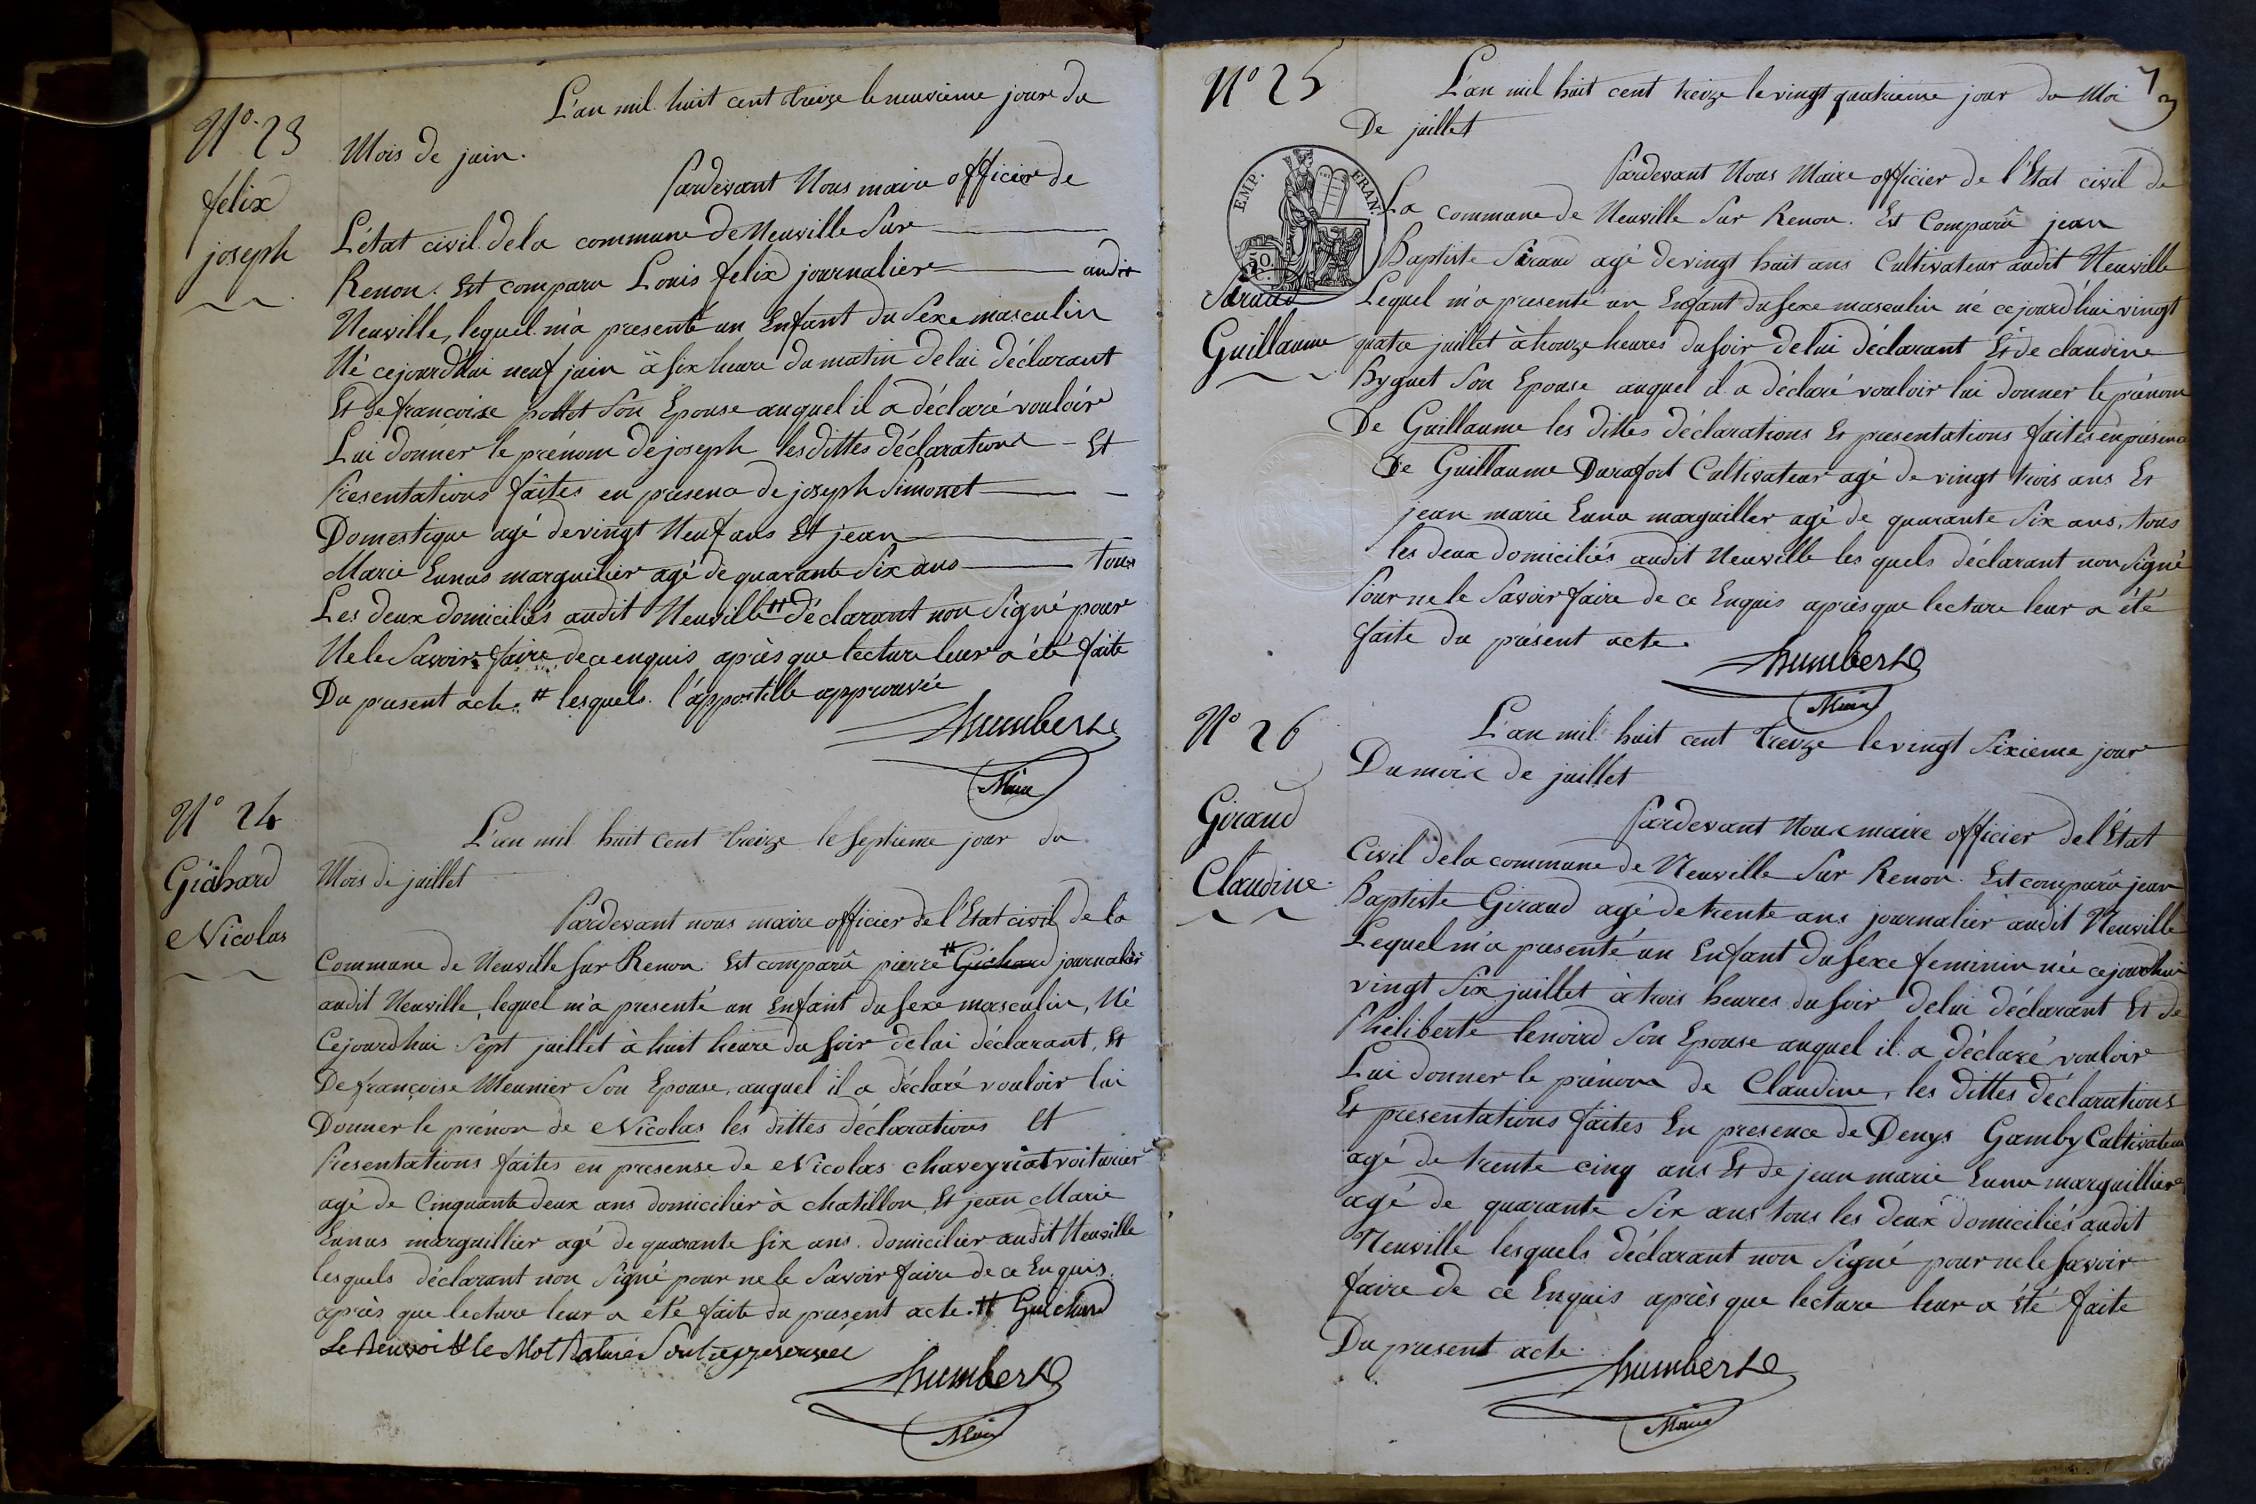 N° 23
felix
joseph
L'an mil huit cent treize le neuvieme jour du
Mois de juin.
Pardevant Nous maire officier de
L'état civil de la commune de Neuville Sur
Renon. Est comparu Louis felix journalier audit
Neuville, lequel m'a presenté un Enfant du Sexe masculin
Né cejourd'hui neuf juin à Six heure du matin de lui déclarant
Et de francoise pollet Son Epouse auquel il a déclaré vouloir
Lui donner le prénom de joseph les dittes déclarations - Et
Presentations faites en presence de joseph Simonet
Domestique agé de vingt Neuf ans Et jean
Marie Eunus marguilier agé de quarante Six ans tous
Les deux domiciliés audit Neuville # déclarant non Signé pour
Ne le Savoir faire de ce enquis après que lecture leur a été faite
Du present acte. # lesquels. l'appostille approuvée
humbert
Maire
N° 24
Gichard
Nicolas
L'an mil huit cent treize le Septieme jour du
Mois de juillet
Pardevant nous maire officier de l'Etat civil de la
Commune de Neuville Sur Renon Est comparû pierre # Gichard journalier
audit Neuville, lequel m'a presenté un Enfant du Sexe masculin, Né
Cejourdhui Sept juillet à huit heure du Soir de lui déclarant, Et
De françoise Meunier Son Epouse, auquel il a déclaré vouloir lui
Donner le prénon de Nicolas les dittes déclarations Et
Presentations faites en presense de Nicolas chaveyriat voiturier
agé de Cinquante deux ans domicilier à chatillon, Et jean Marie
Eunus marguillier agé de quarante Six ans. domicilier audit Neuville
lesquels déclarant non Signé pour ne le Savoir faire de ce Enquis.
après que lecture leur a été faite du present acte. # Guichard
Le Renvoi Et le Mot Raturé Sont approuvée
humbert
Maire
N° 25
7
EMP. FRAN.
50
C.
Guillaume
L'an mil huit cent treize le vingt quatrieme jour du Moi
De juillet
Pardevant Nous Maire officier de l'Etat civil de
La commune de Neuville Sur Renon. Est Comparû jean
Baptiste agé de vingt huit ans Cultivateur audit Neuville
Lequel m'a presenté un Enfant du Sexe masculin né cejourd'hui vingt
quatre juillet à honze heures du Soir de lui déclarant Et de claudine
Byguet Son Epouse auquel il a déclaré vouloir lui donner le prénom
De Guillaume les dittes déclarations Et presentations faites en présence
De Guillaume Durafort Cultivateur agé de vingt trois ans Et
jean marie Eunu marguiller agé de quarante Six ans, tous
les deux domiciliés audit Neuville les quels déclarant non Signé
Pour ne le Savoir faire de ce Enquis après que lecture leur a été
faite du présent acte.
humbert
Maire
N° 26
Giraud
Claudine
L'an mil huit cent treize le vingt Sixieme jour
Du mois de juillet
Pardevant Nous maire officier de l'Etat
Civil de la commune de Neuville Sur Renon. Est comparû jean
Baptiste Giraud agé de trente ans journalier audit Neuville
Lequel m'a presenté un Enfant du Sexe feminin née cejourdhui
vingt Six juillet à trois heures du Soir de lui déclarant Et de
Philiberte lenoird Son Epouse auquel il a déclaré vouloir
Lui donner le prénom de Claudine, les dittes déclarations
Et presentations faites En presence de Denys Gamby Cultivateur
agé de trente cinq ans Et de jean marie Eunu marguillier
agé de quarante Six ans tous les deux domiciliés audit
Neuville lesquels déclarant non Signé pour ne le Savoir
faire de ce Enquis après que lecture leur a été faite
Du present acte.
humbert
Maire